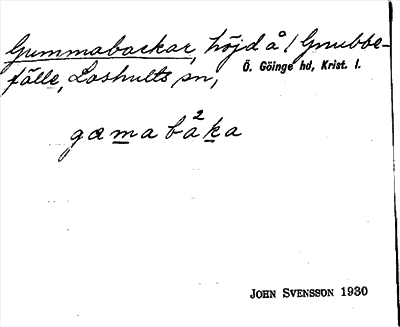 Gummabackar, höjd å / Gnubbe-
fälle, Loshults sn, Ö. Göinge hd, Krist. l.
gæma ba²ka
JOHN SVENSSON 1930